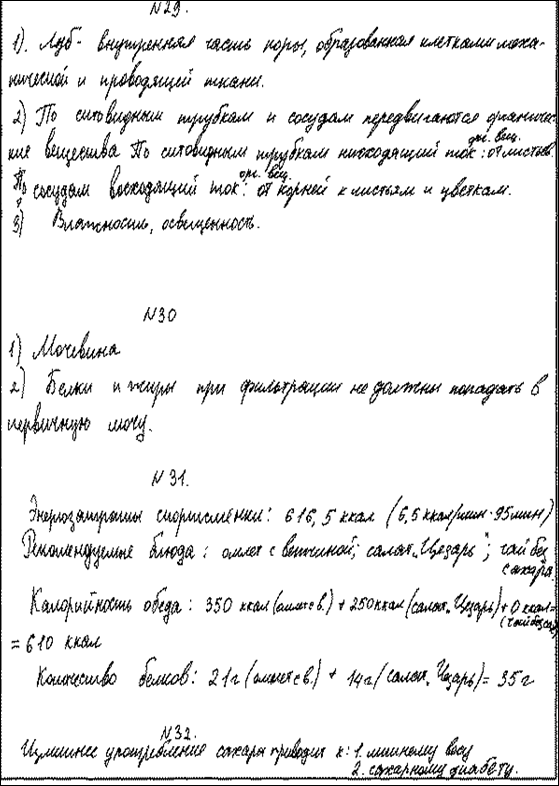 N29.
1). Луб - внутренняя часть коры, образованная клетками меха-
нической и проводящей ткани.
2) По ситовидным трубкам и сосудам передвигаются органичес-
кие вещества По ситовидным трубкам нисходящий ток: орг. вещ. от листьев
По сосудам восходящий ток: орг. вещ. от корней к листьям и цветкам.
3) Влажность, освещенность.
N30
1) Мочевина
2) Белки и жиры при фильтрации не должны попадать в
первичную мочу.
N31.
Энергозатраты спортсменки: 616,5 ккал (6,5 ккал/мин · 95мин)
Рекомендуемые блюда: омлет с ветчиной; салат „Цезарь"; чай без
сахара
Калорийность обеда: 350 ккал (омлет с в.) + 250 ккал (салат „Цезарь) + 0 ккал =
(чай без сах)
= 610 ккал
Количество белков: 21г (омлет с в.) + 14г (салат „Цезарь) = 35г
N32.
Излишнее употребление сахара приводит к: 1. лишнему весу
2. сахарному диабету.